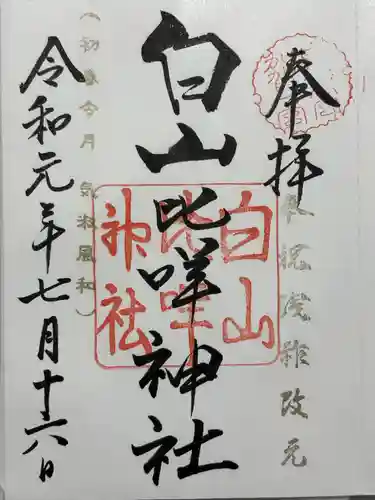 奉拝
奉祝践祚改元
白山比咩神社
白山
比咩
神社
令和元年七月十六日
(初春令月 気淑風和)